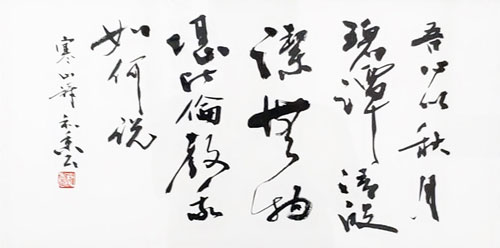 吾心似秋月
碧潭清皎
潔無物
堪比倫教我
如何說
寒山禪